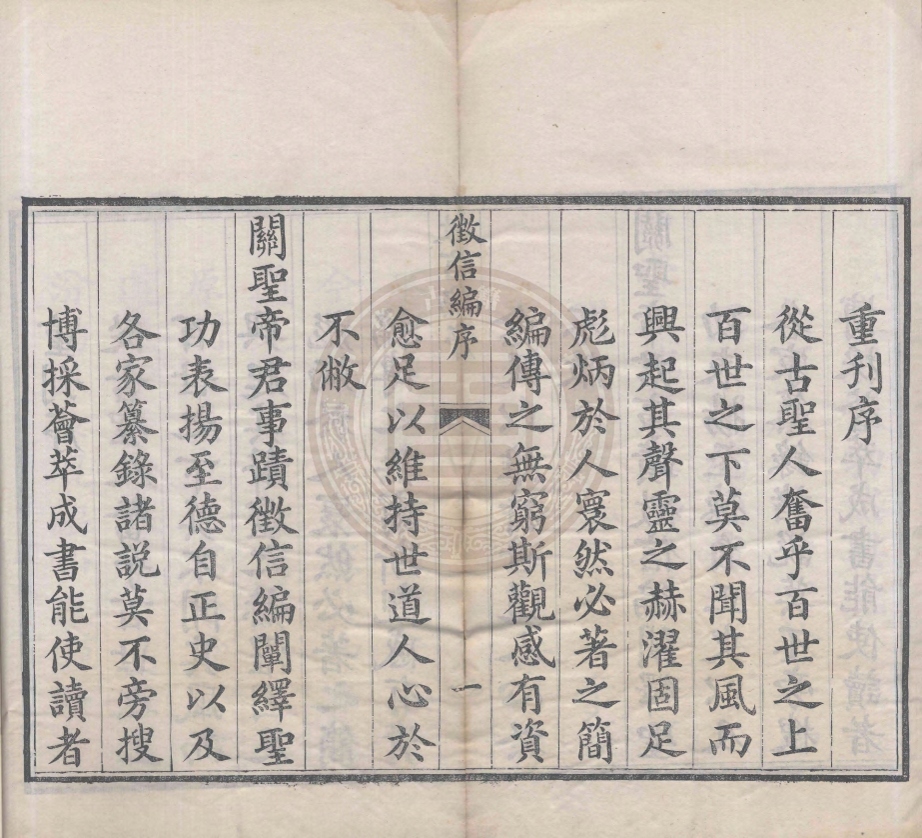 重刊序
從古聖人奮乎百世之上
百世之下莫不聞其風而
興起其聲靈之赫濯固足
彪炳於人寰然必著之簡
編傳之無窮斯觀感有資
徵信編序 一
愈足以維持世道人心於
不敝
關聖帝君事蹟徵信編闡繹聖
功表揚至德自正史以及
各家纂錄諸説莫不旁搜
博採薈萃成書能使讀者